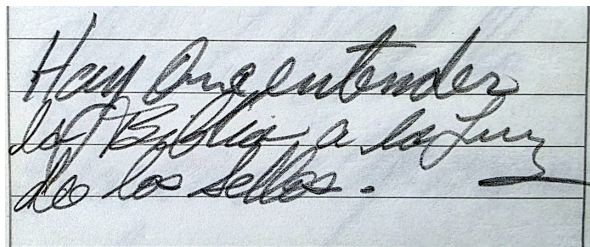 Hay Que entender
la Biblia a la Luz
de los sellos.